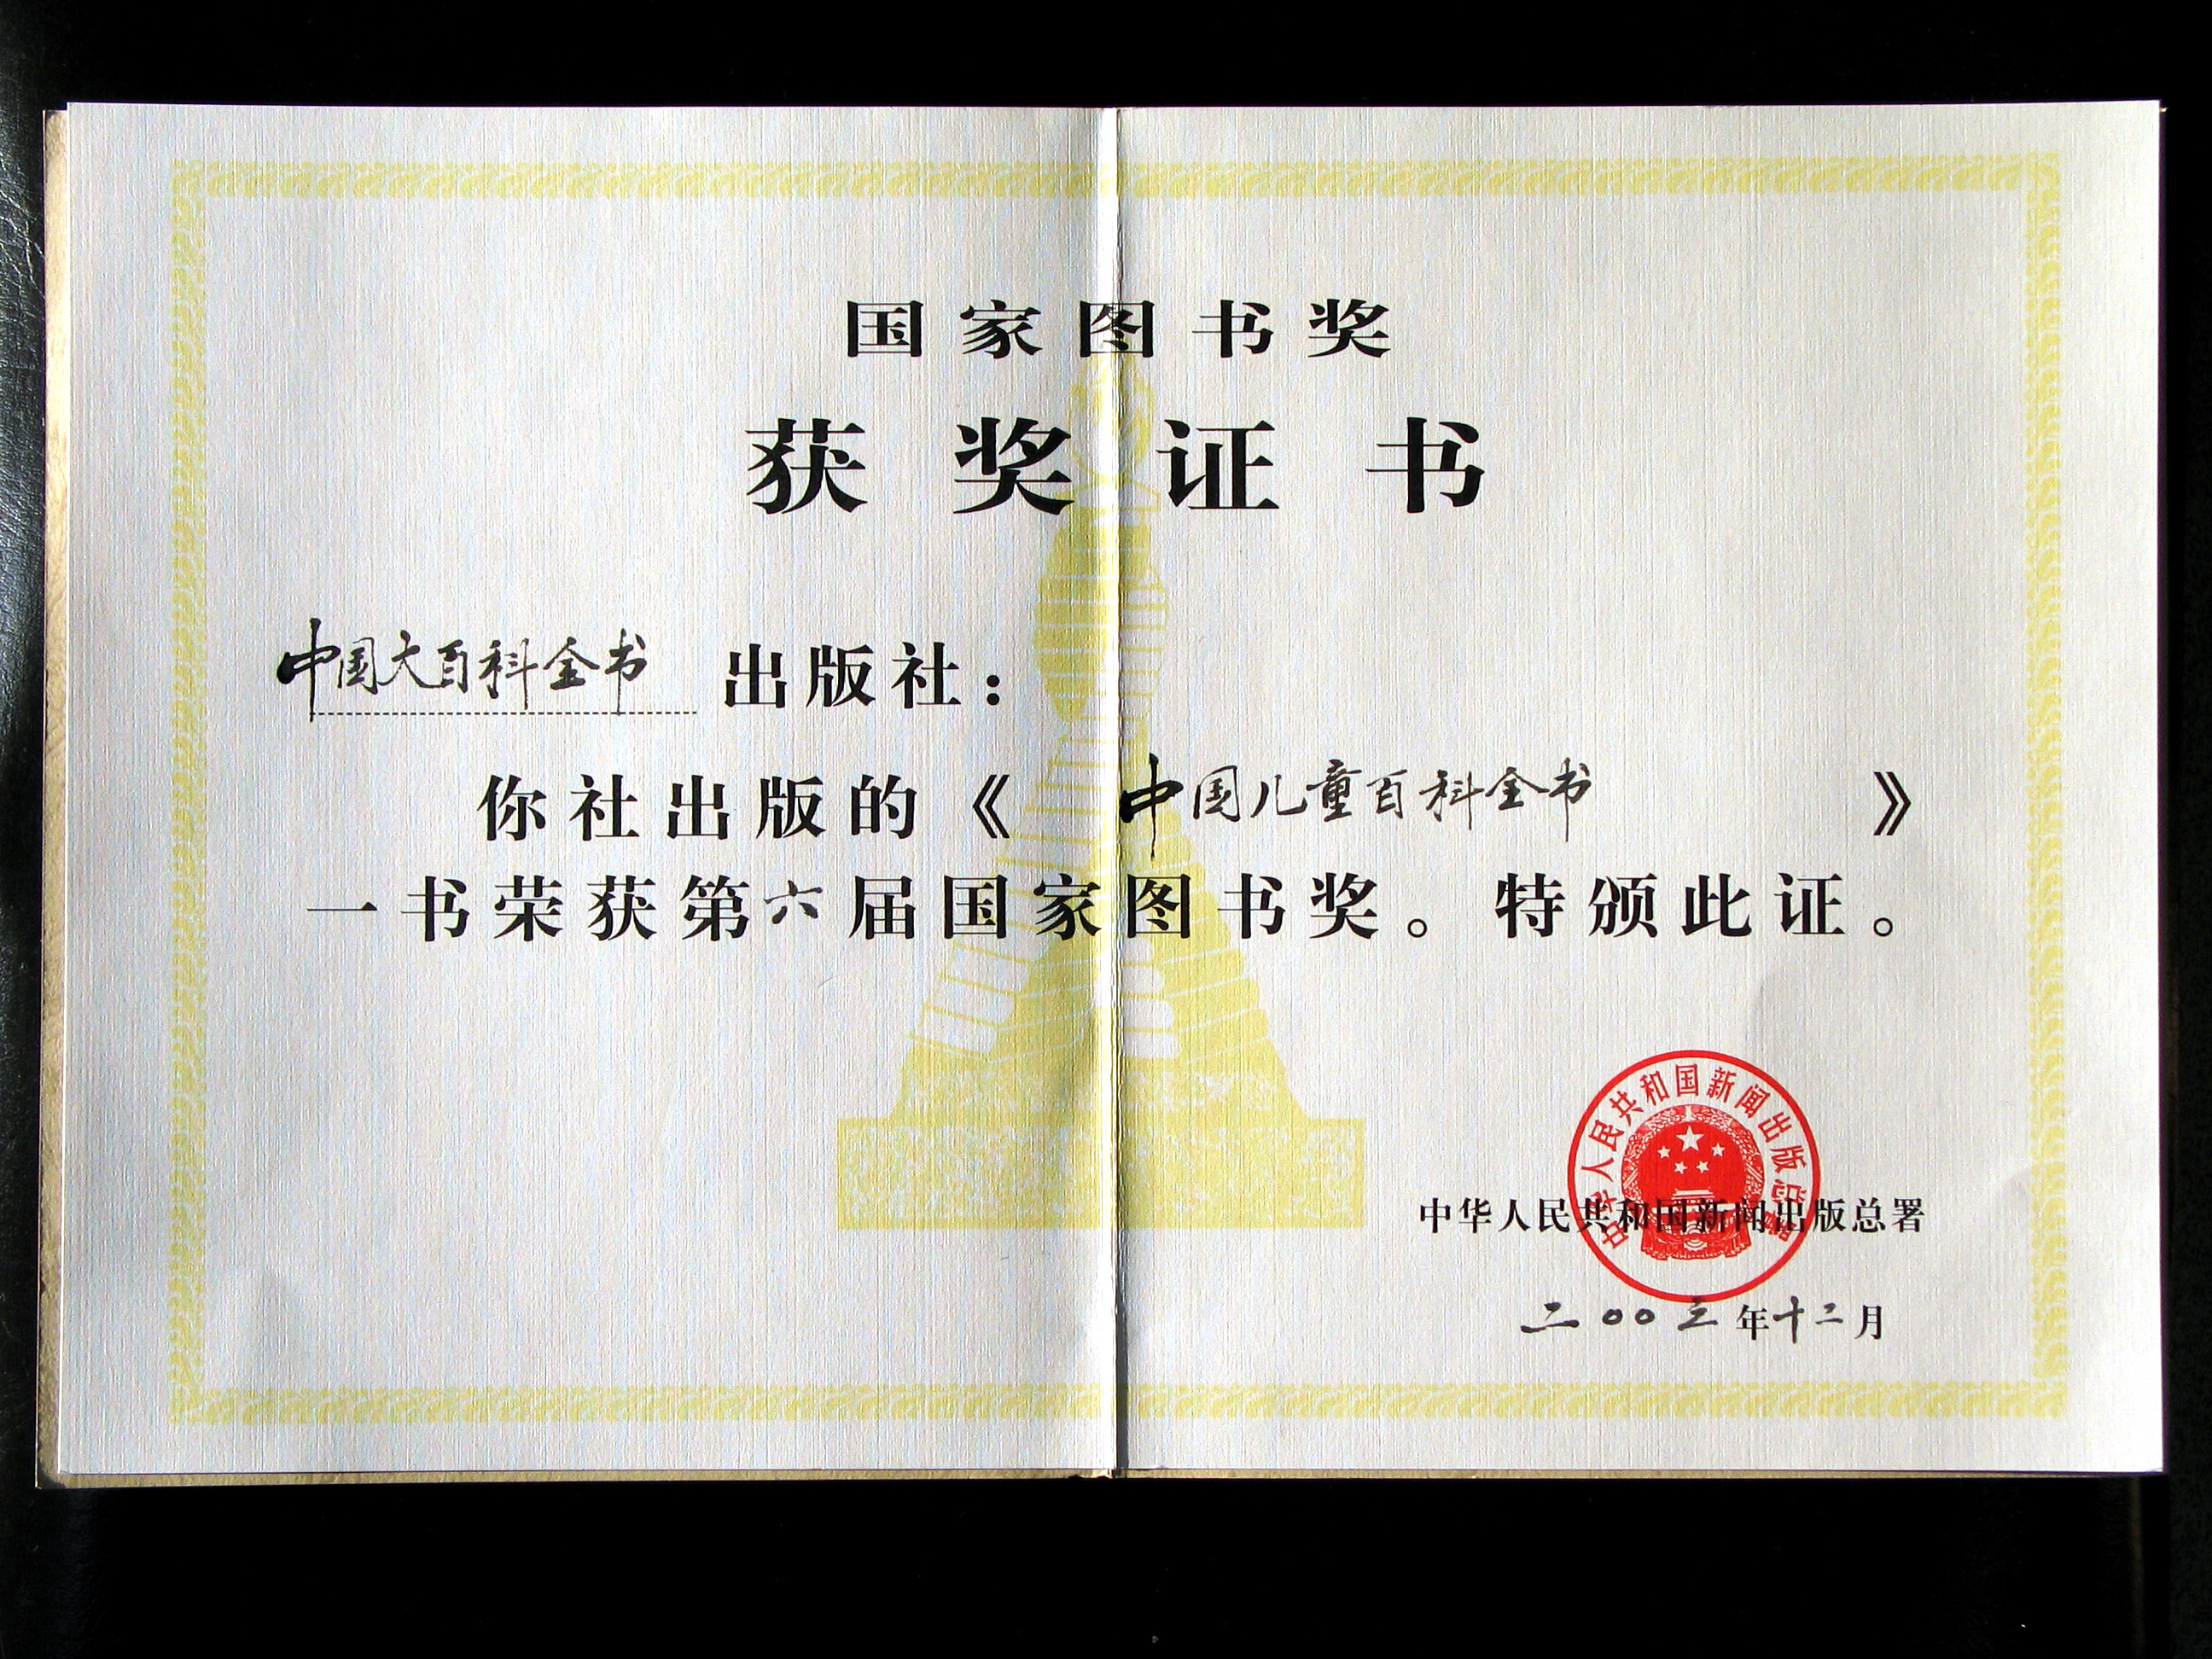 国家图书奖
获奖证书
中国大百科全书 出版社：
你社出版的《 中国儿童百科全书 》
一书荣获第六届国家图书奖。特颁此证。
中华人民共和国新闻出版总署
中华人民共和国新闻出版总署
二〇〇三年十二月